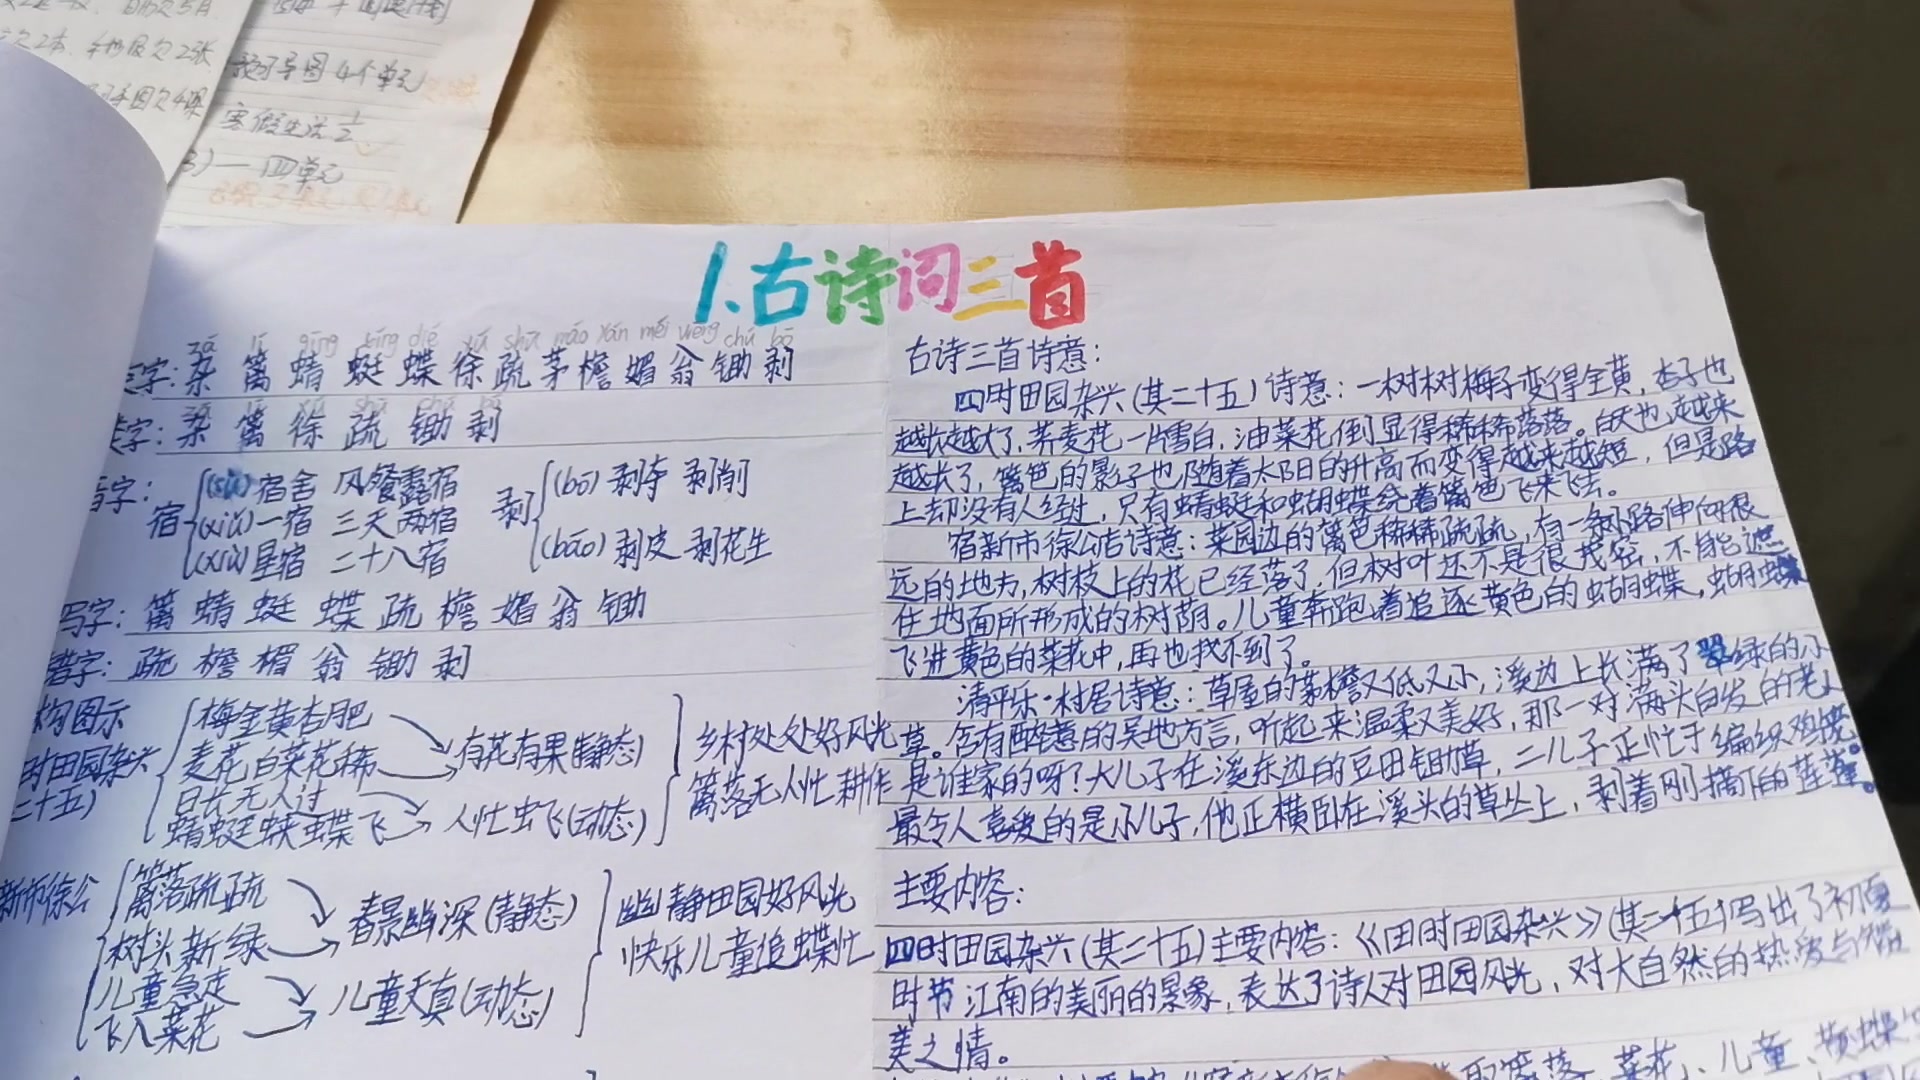 寒假生活
一四单元
1.古诗词三首
zá lí qīng tíng dié xú shū máo yán mèi wēng chú bō
字:杂 篱 蜻 蜓 蝶 徐 疏 茅 檐 媚 翁 锄 剥
字:杂 篱 徐 疏 锄 剥
音字:
宿
(sù)宿舍 风餐露宿
(xiǔ)一宿 三天两宿
(xiù)星宿 二十八宿
剥
(bō)剥夺 剥削
(bāo)剥皮 剥花生
写字:篱 蜻 蜓 蝶 疏 檐 媚 翁 锄
错字:疏 檐 媚 翁 锄 剥
构图示
时田园杂兴
二十五)
梅金黄杏肥
麦花白菜花稀
有花有果(静态)
日长无人过
蜻蜓蛱蝶飞
人忙虫飞(动态)
乡村处处好风光
篱落无人忙耕作
新市徐公
篱落疏疏
树头新绿
春景幽深(静态)
儿童急走
飞入菜花
儿童天真(动态)
幽静田园好风光
快乐儿童追蝶忙
古诗三首诗意:
四时田园杂兴(其二十五)诗意:一树树梅子变得金黄,杏子也
越长越大了,荞麦花一片雪白,油菜花倒显得稀稀落落。白天也越来
越长了,篱笆的影子也随着太阳的升高而变得越来越短,但是路
上却没有人经过,只有蜻蜓和蝴蝶绕着篱笆飞来飞去。
宿新市徐公店诗意:菜园边的篱笆稀稀疏疏,有一条小路伸向很
远的地方,树枝上的花已经落了,但树叶还不是很茂密,不能遮
住地面所形成的树荫。儿童奔跑着追逐黄色的蝴蝶,蝴蝶
飞进黄色的菜花中,再也找不到了。
清平乐·村居诗意:草屋的茅檐又低又小,溪边上长满了翠绿的小
草。含有醉意的吴地方言,听起来温柔又美好,那一对满头白发的老人
是谁家的呀?大儿子在溪东边的豆田锄草,二儿子正忙于编织鸡笼。
最令人喜爱的是小儿子,他正横卧在溪头的草丛上,剥着刚摘下的莲蓬。
主要内容:
四时田园杂兴(其二十五)主要内容:《四时田园杂兴》(其二十五)写出了初夏
时节江南的美丽的景象,表达了诗人对田园风光,对大自然的热爱与赞
美之情。
篱落、菜花、儿童、黄蝶